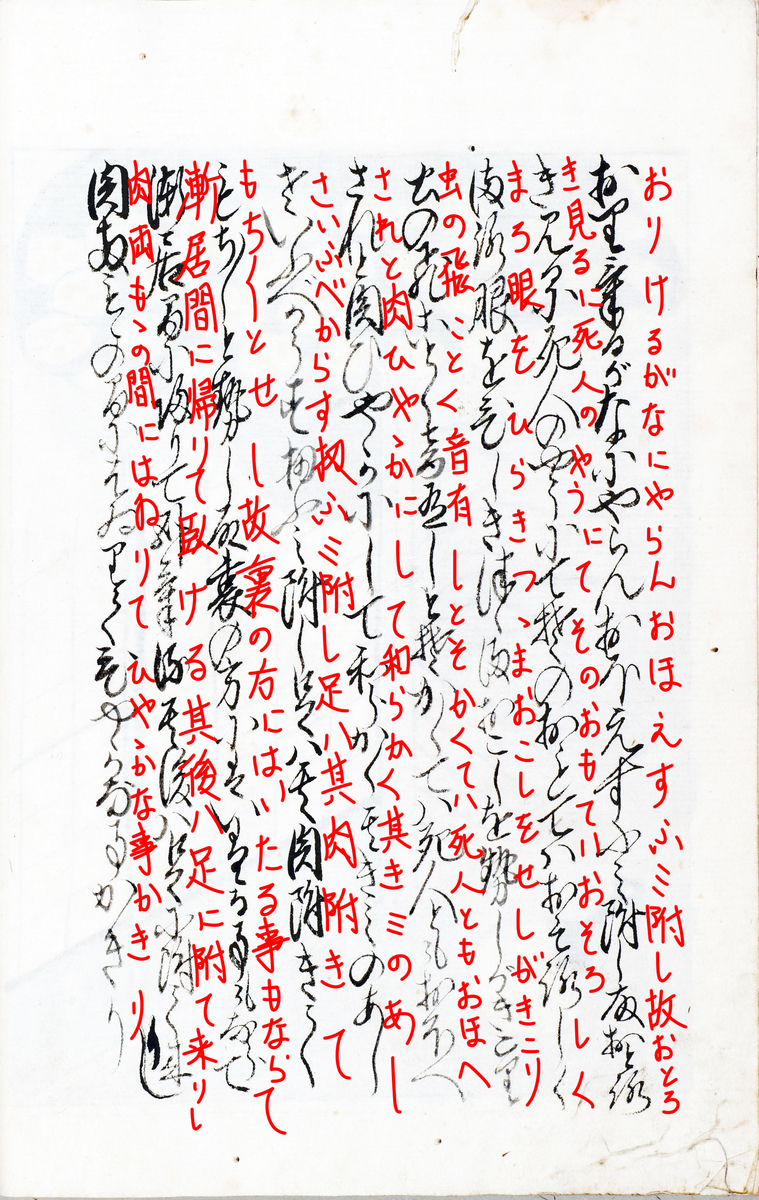 おりけるがなにやらんおほえすふミ附し故おとろ
き見るに死人のやうにてそのおもてハおそろしく
まろ眼をひらきつゝまおこしをせしがきこり
虫の飛ことく音有しとそかくてハ死人ともおほへ
されと肉ひやゝかにして和らかく其きミのあし
さいふべからす扨ふミ附し足ハ其肉附きて
もち〳〵とせし故裏の方にはいたる事もならて
漸居間に帰りて臥ける其後ハ足に附て来りし
肉両もゝの間にはゐりてひやゝかな事かきり